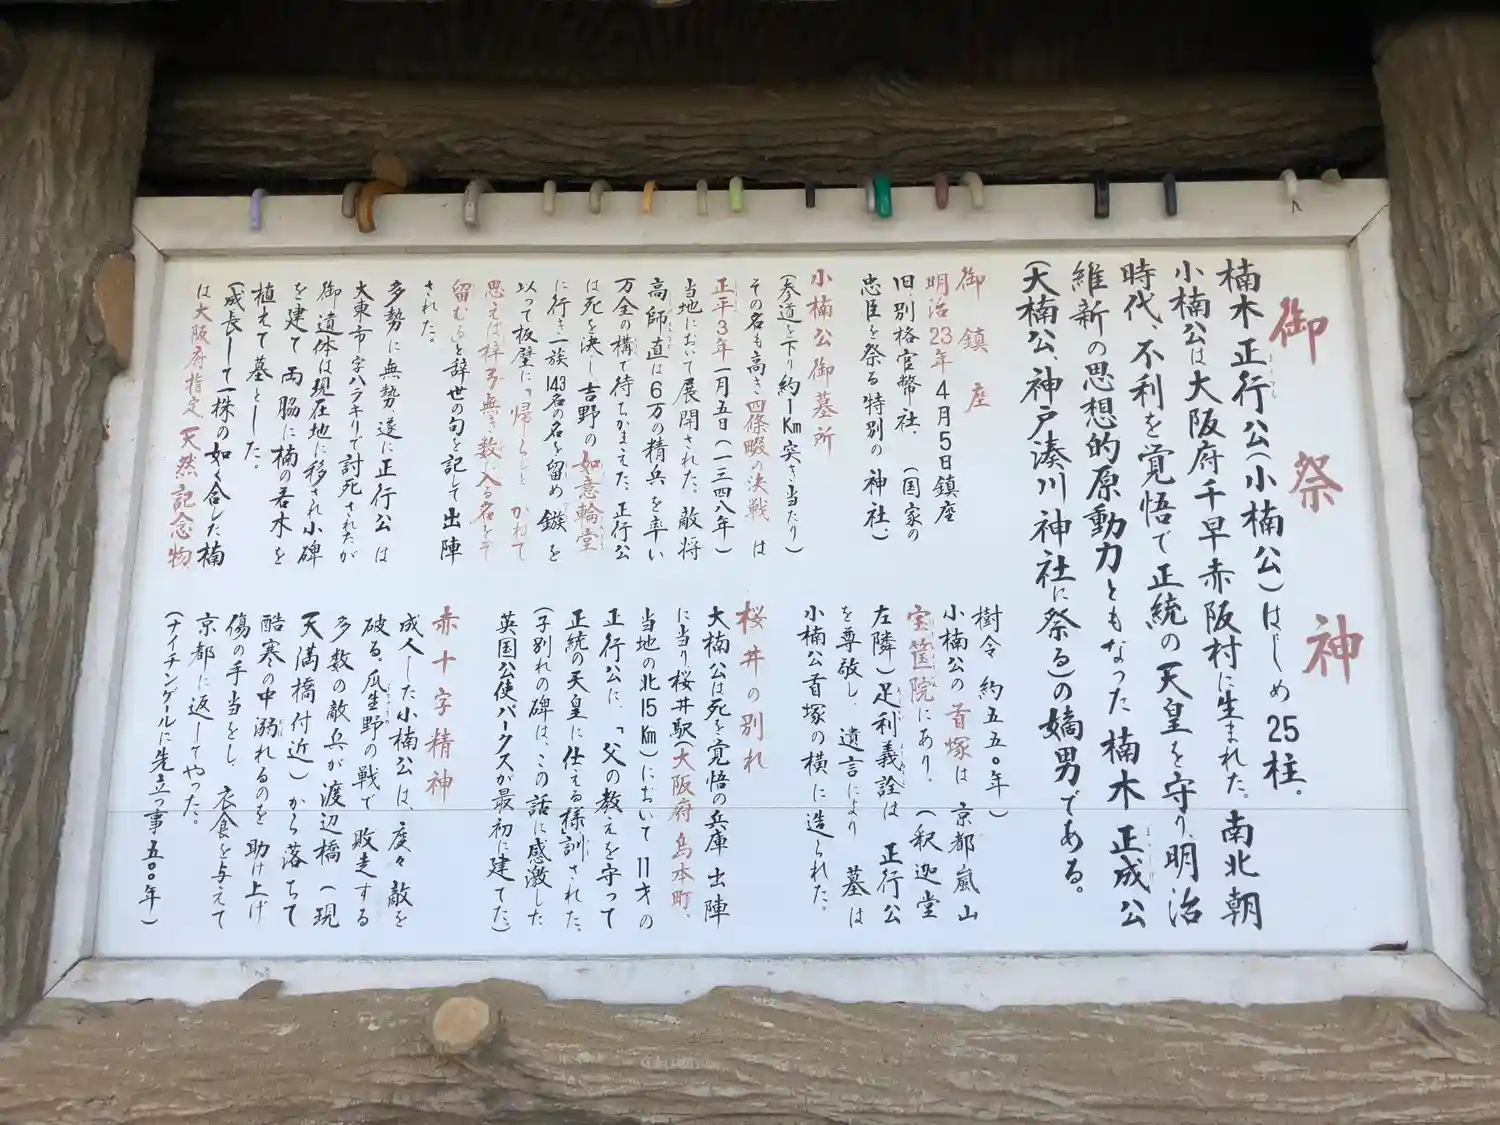 御祭神
楠木正行公(小楠公)はじめ25柱。
小楠公は大阪府千早赤阪村に生まれた。南北朝
時代、不利を覚悟で正統の天皇を守り、明治
維新の思想的原動力ともなった楠木正成公
(大楠公、神戸湊川神社に祭る)の嫡男である。
御鎮座
明治23年4月5日鎮座
旧別格官幣社、(国家の
忠臣を祭る特別の神社)
小楠公御墓所
(参道を下り約1Km突き当たり)
その名も高き四條畷の決戦は
正平3年一月五日(一三四八年)
当地において展開された。敵将
高師直は6万の精兵を率い
万全の構で待ちかまえた、正行公
は死を決し吉野の如意輪堂
に行き一族143名の名を留め鏃を
以って板壁に「帰らじとかねて
思えば梓弓無き数に入る名をぞ
留むる」と辞世の句を記して出陣
された。
多勢に無勢、遂に正行公は
大東市字ハラキリで討死されたが
御遺体は現在地に移され小碑
を建て両脇に楠の若木を
植えて墓とした。
(成長して一株の如く合した楠
は大阪府指定天然記念物
樹令約五五〇年)
小楠公の首塚は京都嵐山
宝筐院にあり。(釈迦堂
左隣)足利義詮は正行公
を尊敬し、遺言により墓は
小楠公首塚の横に造られた。
桜井の別れ
大楠公は死を覚悟の兵庫出陣
に当り桜井駅(大阪府島本町、
当地の北15Km)において11才の
正行公に、「父の教えを守って
正統の天皇に仕える様」訓された。
(子別れの碑は、この話に感激した
英国公使パークスが最初に建てた)
赤十字精神
成人した小楠公は、度々敵を
破る。瓜生野の戦で敗走する
多数の敵兵が渡辺橋(現
天満橋付近)から落ちて
酷寒の中溺れるのを助け上げ
傷の手当をし、衣食を与えて
京都に返してやった。
(ナイチンゲールに先立つ事五〇〇年)